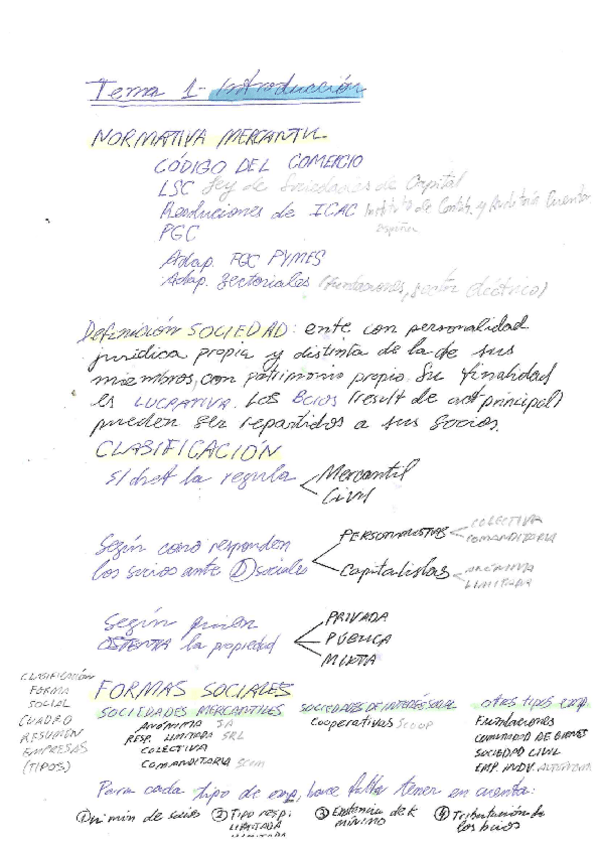 Tema 1- Introducción
NORMATIVA MERCANTIL
CÓDIGO DEL COMERCIO
LSC Ley de Sociedades de Capital
Resoluciones de ICAC Instituto de Contab. y Auditoría Cuentas
España
PGC
Adap. PGC PYMES
Adap. Sectoriales (fundaciones, sector eléctrico)
Definición SOCIEDAD: ente con personalidad
jurídica propia y distinta de la de sus
miembros, con patrimonio propio. Su finalidad
es LUCRATIVA. Los Bcios (result de act principal)
pueden ser repartidos a sus socios.
CLASIFICACIÓN
S/ la regula
Mercantil
Civil
Según como responden
los socios ante D sociales
PERSONALISTAS
COLECTIVA
COMANDITARIA
Capitalistas
ANÓNIMA
LIMITADA
Según quien
OSTENTA la propiedad
PRIVADA
PÚBLICA
MIXTA
CLASIFICACIÓN
FORMA
SOCIAL
CUADRO
RESUMEN
EMPRESAS
(TIPOS)
FORMAS SOCIALES
SOCIEDADES MERCANTILES
ANÓNIMA SA
RESP. LIMITADA SRL
COLECTIVA
COMANDITARIA SCom
SOCIEDADES DE INTERÉS SOCIAL
Cooperativas SCoop
OTROS TIPOS EMP.
Fundaciones
COMUNIDAD DE BIENES
SOCIEDAD CIVIL
EMP. INDV. AUTÓNOMA
Para cada tipo de emp, hace falta tener en cuenta:
① nº min de socios ② TIPO resp: ③ Existencia de K ④ Tributación de
LIMITADA mínimo los bcios